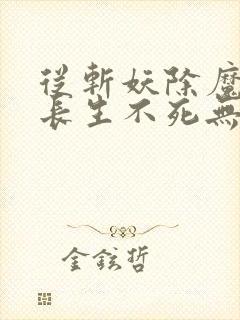 從斬妖除魔
長生不死無
金鉉哲